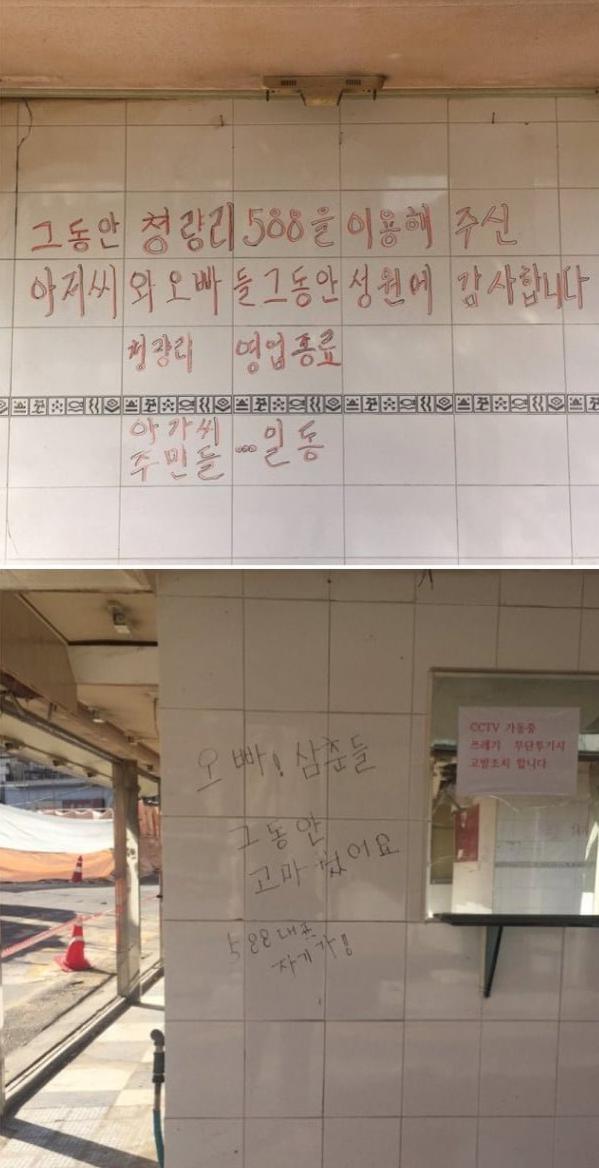 그동안 청량리 588을 이용해 주신
아저씨와 오빠들 그동안 성원에 감사합니다
청량리 영업종료
아가씨
주민들 ... 일동
오빠! 삼춘들
그동안
고마웠어요
588 대표
자기가!
CCTV 가동중
쓰레기 무단투기시
고발조치 합니다